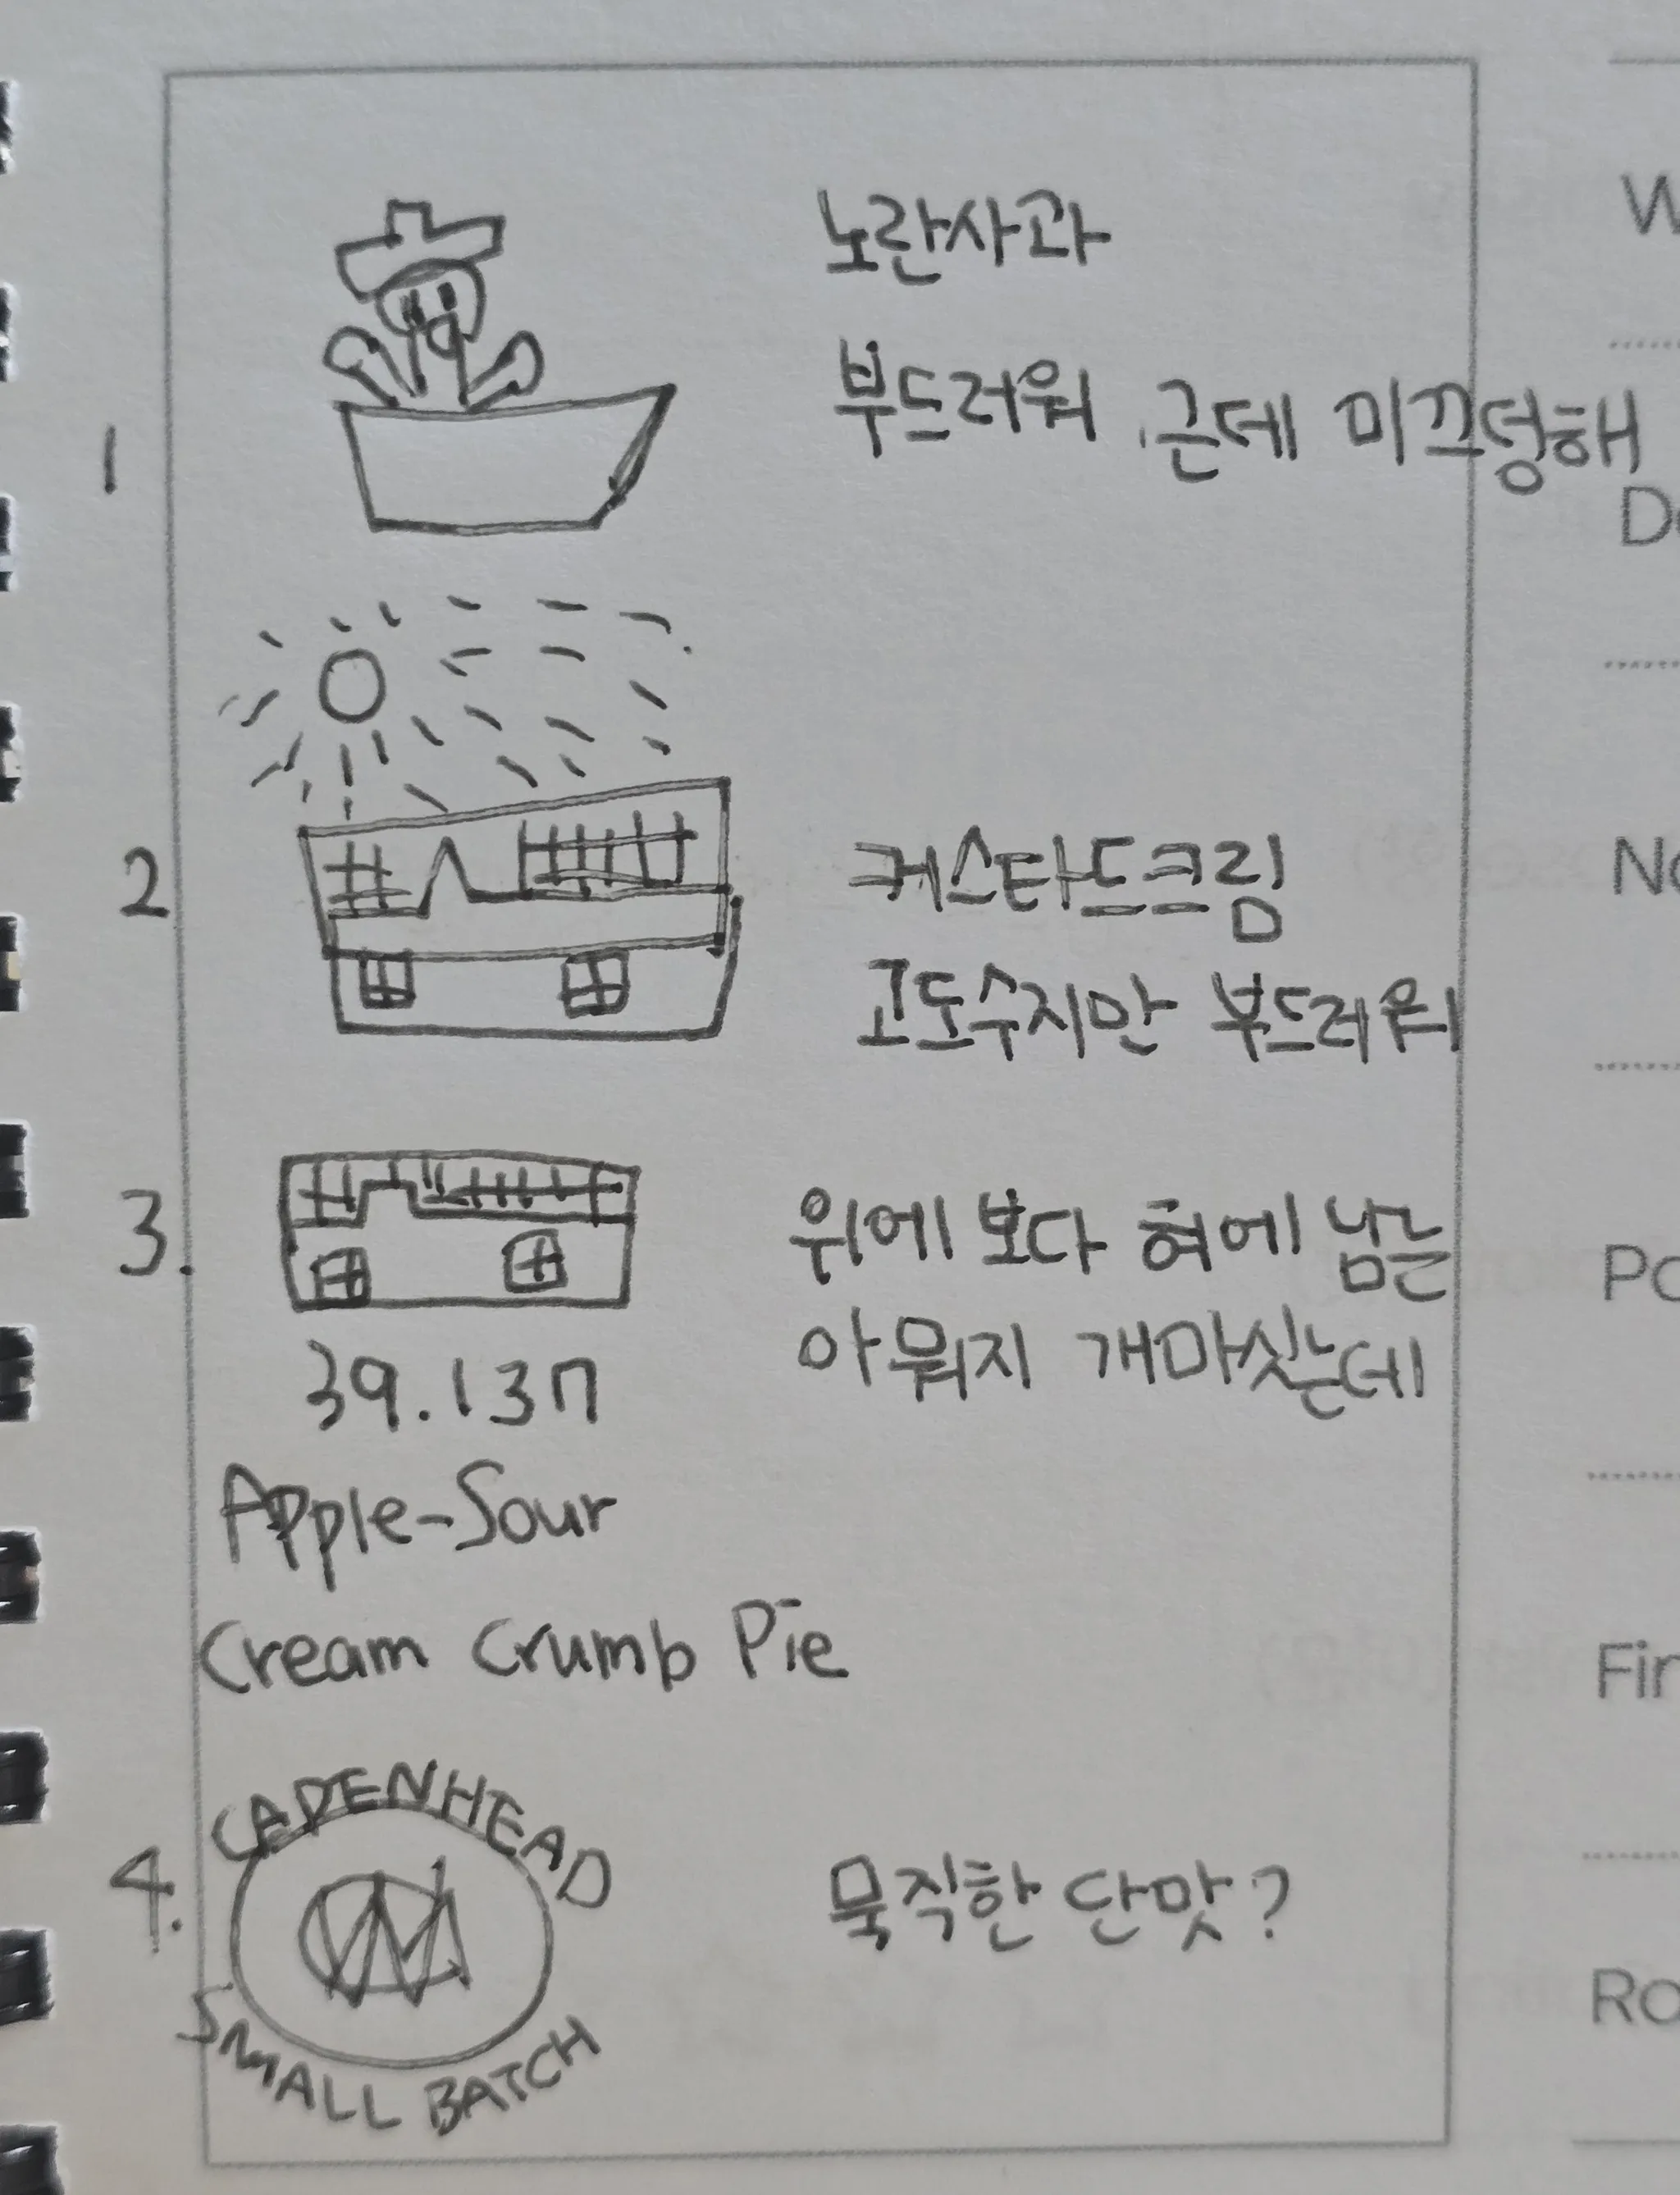 노란사과
부드러워. 근데 미끄덩해
1
2
커스타드크림
고도수지만 부드러워
3.
위에 보다 혀에 남는
아 뭐지 개마싯는데
39.137
Apple-Sour
Cream Crumb Pie
4.
CADENHEAD
SMALL BATCH
묵직한 단맛?
W
No
Fin